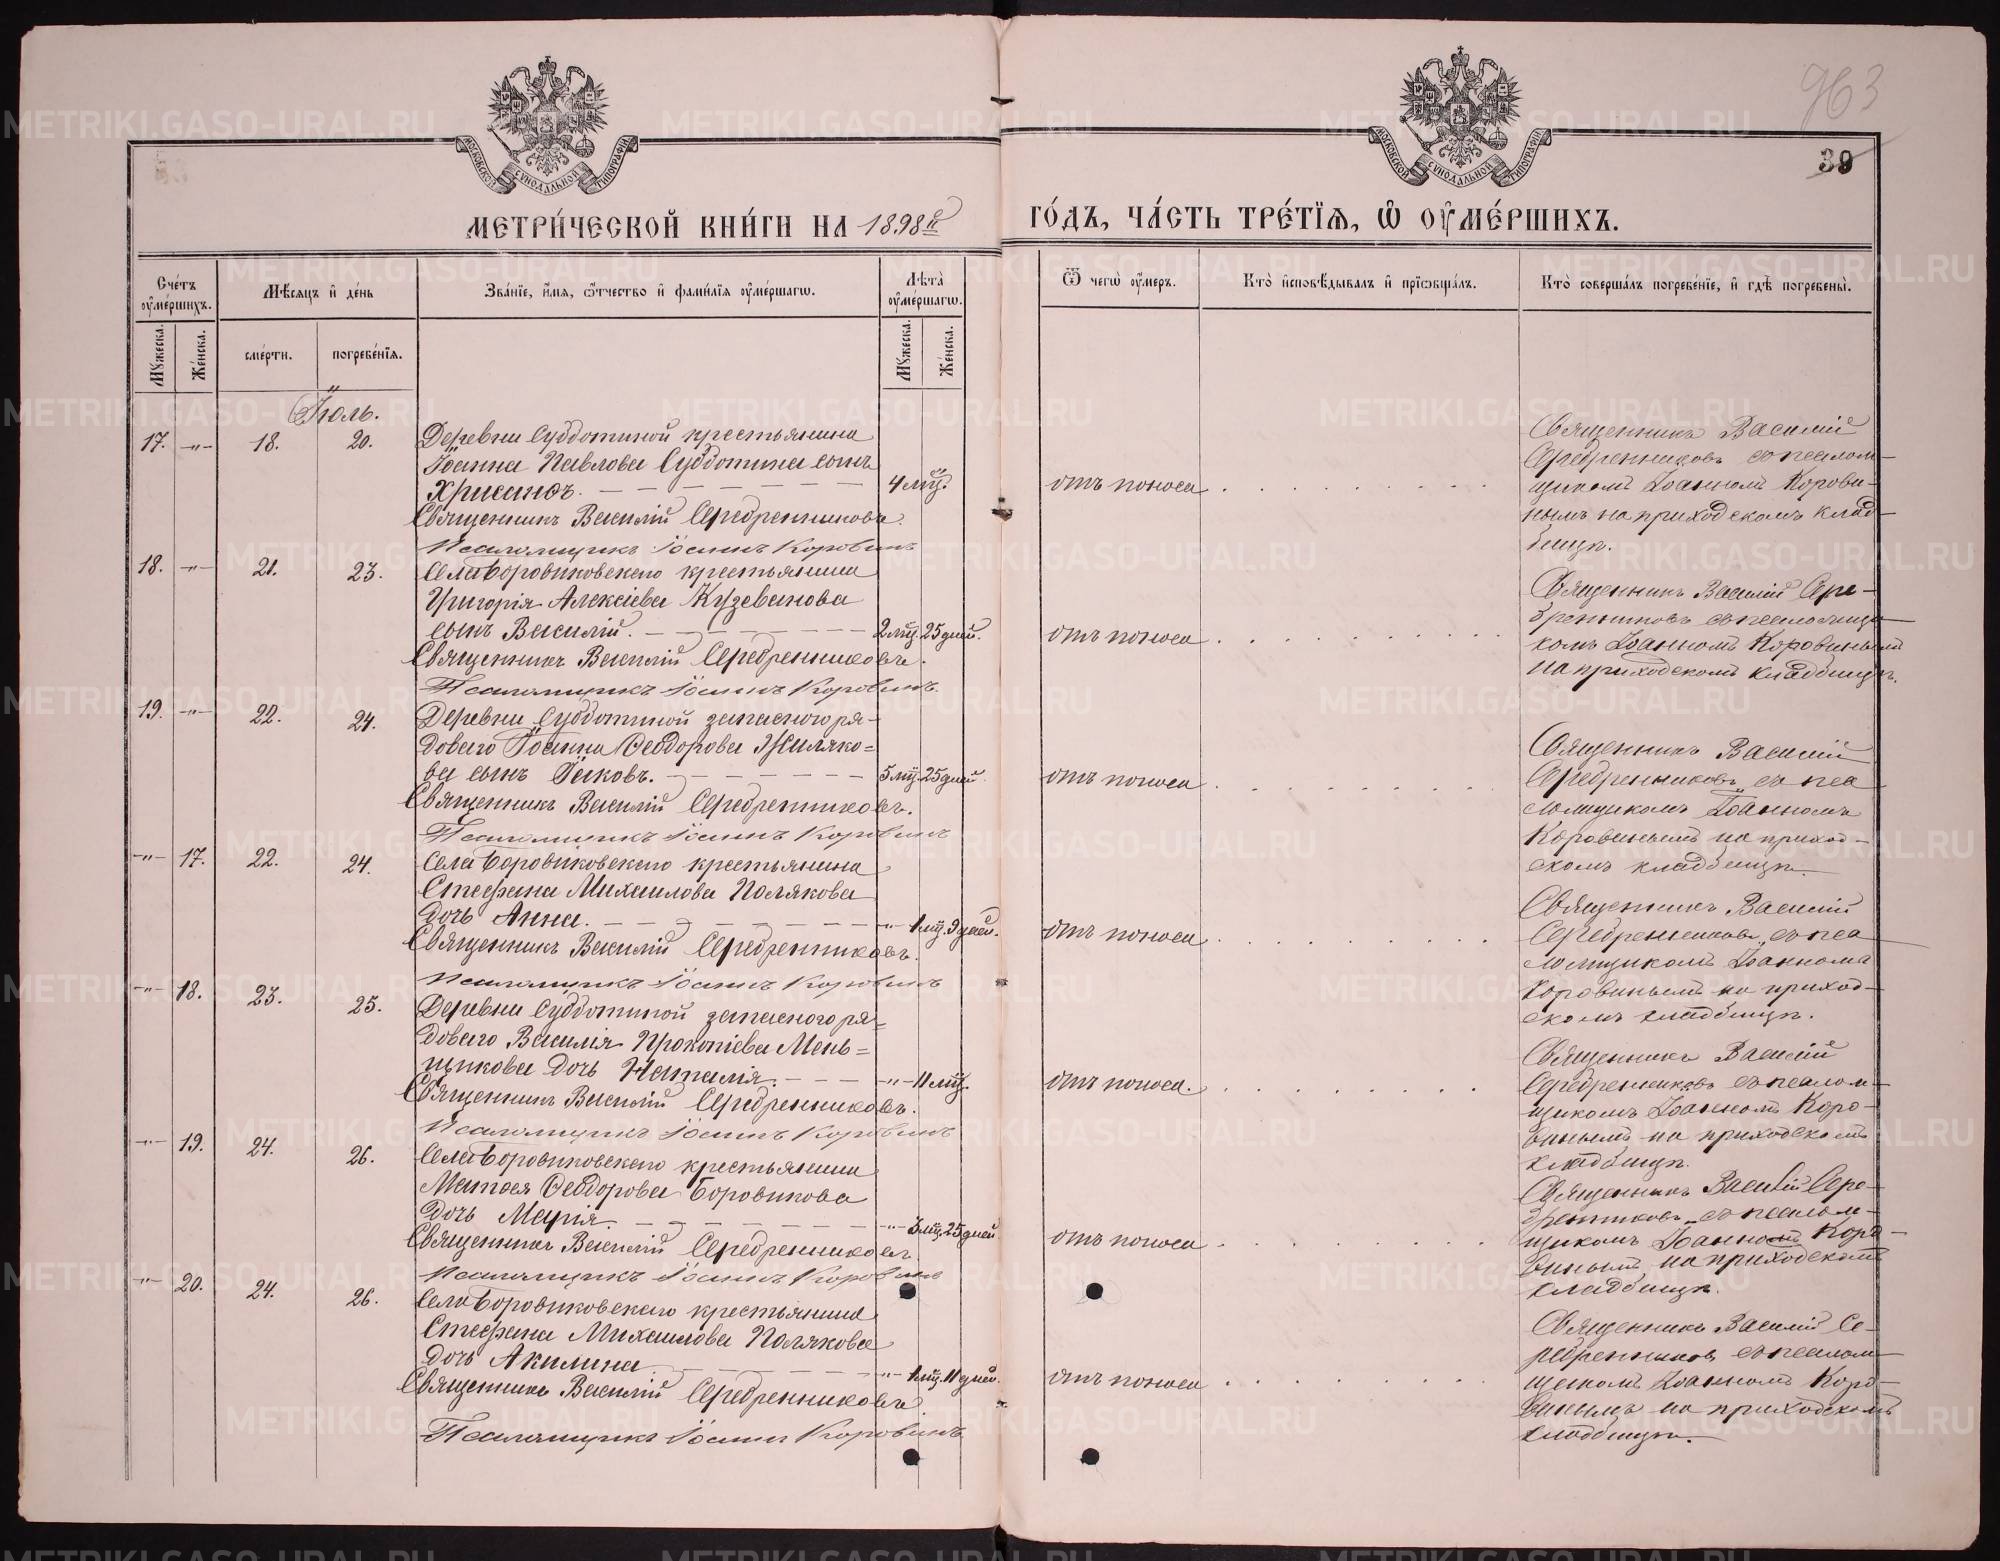 963
39
МОСКОВСКОЙ СѴНОДАЛЬНОЙ ТИПОГРАФІИ
МОСКОВСКОЙ СѴНОДАЛЬНОЙ ТИПОГРАФІИ
МЕТРИ́ЧЕСКОЙ КНИ́ГИ НА 1898й ГО́ДЪ, ЧА́СТЬ ТРЕ́ТЇѦ, Ѡ ОУМЕ́РШИХЪ.
Сче́тъ оумершихъ.
Мꙋжеска.
Же́нска.
Мѣсѧцъ и де́нь
сме́рти.
погребе́нїѧ.
Зва́нїе, и́мѧ, ѻ҆́тчество и фами́лїѧ оумершагѡ.
Лѣ́та оумершагѡ.
Мꙋжеска.
Же́нска.
Ѿ чегѡ̀ оу́меръ.
Кто̀ исповѣ́дывалъ и прїѡбща́лъ.
Кто̀ соверша́лъ погребе́нїе, и гдѣ̀ погребены̀.
Іюль.
17. -"- 18. 20.
Деревни Субботиной крестьянина
Іоанна Павлова Субботина сынъ
Хрисанѳъ. 4 мц. отъ поноса
Священникъ Василій Серебренниковъ.
Псаломщикъ Іоаннъ Коровинъ
Священникъ Василій
Серебренниковъ съ псалом-
щикомъ Іоанномъ Корови-
нымъ на приходскомъ клад-
бищѣ.
18. -"- 21. 23.
Села Боровиковскаго крестьянина
Григорія Алексіева Кузеванова
сынъ Василій. 2 мц. 25 дней. отъ поноса
Священникъ Василій Серебренниковъ.
Псаломщикъ Іоаннъ Коровинъ.
Священникъ Василій Сере-
бренниковъ съ псаломщи-
комъ Іоанномъ Коровинымъ
на приходскомъ кладбищѣ.
19. -"- 22. 24.
Деревни Субботиной запаснаго ря-
доваго Іоанна Ѳеодорова Жиляко=
ва сынъ Іаковъ. 5 мц. 25 дней. отъ поноса
Священникъ Василій Серебренниковъ.
Псаломщикъ Іоаннъ Коровинъ
Священникъ Василій
Серебренниковъ съ пса
ломщикомъ Іоанномъ
Коровинымъ на приход-
скомъ кладбищѣ.
-"- 17. 22. 24.
Села Боровиковскаго крестьянина
Стефана Михаилова Полякова
дочь Анна. -"- 1 мц. 9 дней. отъ поноса
Священникъ Василій Серебренниковъ.
Псаломщикъ Іоаннъ Коровинъ
Священникъ Василій
Серебренниковъ съ пса
ломщикомъ Іоанномъ
Коровинымъ на приход-
скомъ кладбищѣ.
-"- 18. 23. 25.
Деревни Субботиной запаснаго ря=
доваго Василія Прокопіева Мень=
щикова дочь Наталія. -"- 11 мц. отъ поноса.
Священникъ Василій Серебренниковъ.
Псаломщикъ Іоаннъ Коровинъ
Священникъ Василій
Серебренниковъ съ псалом-
щикомъ Іоанномъ Коро-
винымъ на приходскомъ
кладбищѣ.
-"- 19. 24. 26.
Села Боровиковскаго крестьянина
Матѳея Ѳеодорова Боровикова
дочь Марія. -"- 3 мц. 25 дней. отъ поноса
Священникъ Василій Серебренниковъ
Псаломщикъ Іоаннъ Коровинъ
Священникъ Василій Сере-
бренниковъ съ псалом-
щикомъ Іоанномъ Коро-
винымъ на приходскомъ
кладбищѣ.
-"- 20. 24. 26.
Села Боровиковскаго крестьянина
Стефана Михаилова Полякова
дочь Акилина -"- 1 мц. 11 дней. отъ поноса
Священникъ Василій Серебренниковъ.
Псаломщикъ Іоаннъ Коровинъ
Священникъ Василій Се-
ребренниковъ съ псалом-
щикомъ Іоанномъ Коро-
винымъ на приходскомъ
кладбищѣ.
METRIKI.GASO-URAL.RU